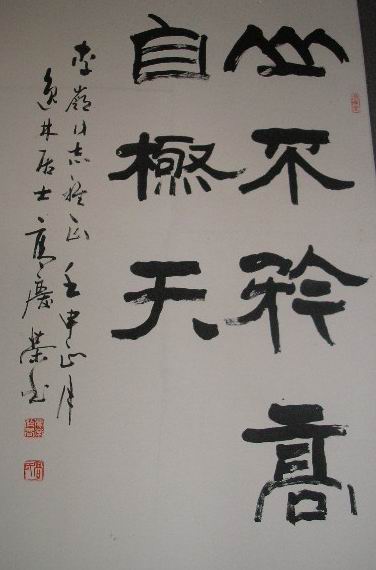 山不矜高
自極天
李嶺同志雅正 壬申正月
逸林居士高慶榮書